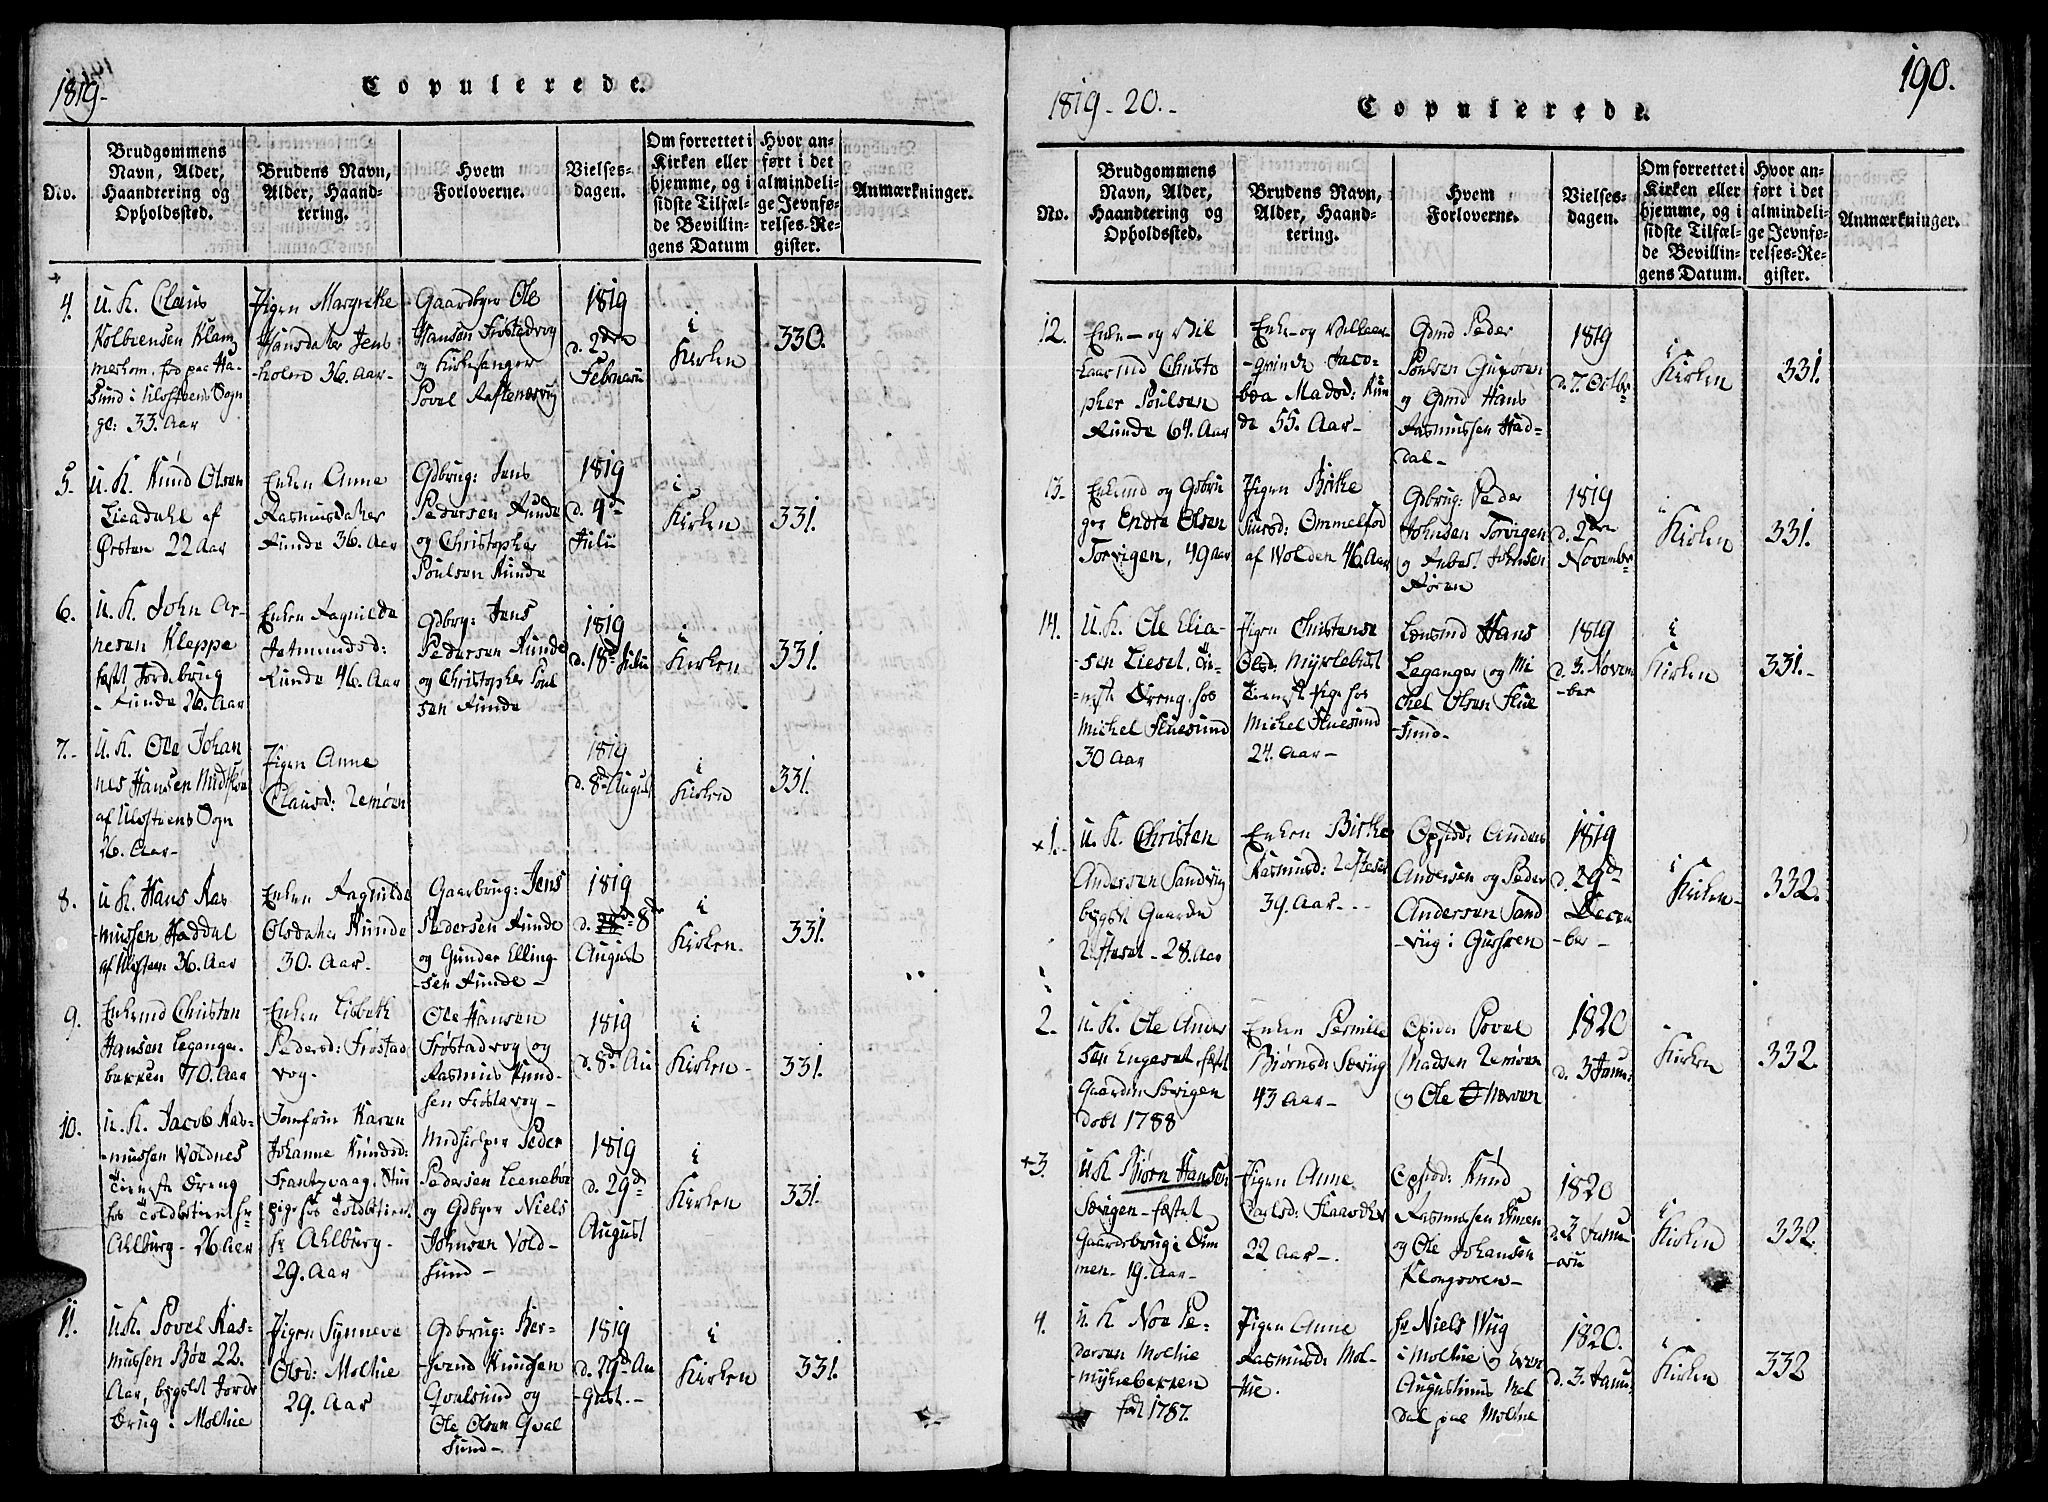 1819.
Copulerede.
No.
Brudgommens
Navn, Alder,
Haandtering og
Opholdssted.
Brudens Navn,
Alder, Haand-
tering.
Hvem
Forloverne.
Vielses-
dagen.
Om forrettet i
Kirken eller
hjemme, og i
sidste Tilfæl-
de Bevillin-
gens Datum
Hvor an-
ført i det
almindeli-
ge Jevnfø-
relses-Re-
gister.
Anmærkninger.
4.
u. K. Claus
Kolbensen
merholm, fød paa Ha-
sund i
ge: 33. Aar
Pigen Margrethe
Hansdatter Jens-
holm 36. Aar
Gaardbger Ole
Hansøn Frøstadvog
og Kirkesanger
Povel
1819
d. 2den
Februarii
i
Kirken
330.
5.
u. K. Knud Olsen
Lieadahl af
Ørsten 22 Aar
Enken Anne
Rasmusdatter
Runde 36. Aar
Gdbrug: Jens
Pedersen Runde
og Christopher
Poulsen Runde
1819
d. 4de
Julii
i
Kirken
331.
6.
u. K. John Ar-
nesen Kleppe
fæst Jordebrug
Runde 26. Aar
Enken Ragnilda
Jetmundsd:
Runde 46. Aar
Gdbrg: Jens
Pedersen Runde
og Christopher Poul
sen Runde
1819
d. 18de Julii
i
Kirken
331.
7.
u. K. Ole Johan
nes Hansen
af Ulsteens Sogn
26. Aar
Pigen Anne
Clausd: Remøen
1819
d. 8de August
i
Kirken
331.
8.
u. K. Hans Ras
mussen Haddal
af Ulsteen 36. Aar
Enken Ragnilde
Olsdatter Runde
30. Aar
Gaarbrug: Jens
Pedersen Runde
og Gunder Elling-
sen Runde
1819
d. 8de
August
i
Kirken.
331.
9.
Enkemd Christen
Hansen Leganger-
bakken 70. Aar
Enken Lisbeth
Pedersd: Frøstad
vog.
Ole Hansen
Frøstadvog og
Rasmus Knud-
sen Frøstavog
1819
d. 8de Au
i
Kirken
331.
10.
u. K. Jacob Ras-
mussen Woldnes
Tieneste Dreng
hos
Ahlburg 26 Aar
Jomfru Karen
Johanne Knudsd:
Frantzvaag,
pige hos
hr Ahlburg
29. Aar
Medhielper Peder
Pedersen Leenebøe
og Gdbger Niels
Johnsen Vold-
sund
1819
d. 29de
August
i
Kirken
331.
11.
u. K. Povel Ras-
mussen Bøe 22.
Aar, bygslt Jorde
brug i Moltue
Pigen Synneve
Olsd: Moltue
29. Aar
Gdbrug: Ber-
send Knudsen
Qvalsund og
Ole Olsen Qval
sund
1819
d. 29de Au
gust.
i
Kirken
331.
1819-20.
Copulerede.
190.
No.
Brudgommens
Navn, Alder,
Haandtering og
Opholdssted.
Brudens Navn,
Alder, Haand-
tering.
Hvem
Forloverne.
Vielses-
dagen.
Om forrettet i
Kirken eller
hjemme, og i
sidste Tilfæl-
de Bevillin-
gens Datum.
Hvor an-
ført i det
almindeli-
ge Jevnfø-
relses-Re-
gister.
Anmærkninger.
12.
Enke- og Vil
kaarmd Christo
pher Poulsen
Runde 64. Aar
Enke- og Vilkaar-
qvinde Jaco-
bea Madsd: Run
de 55. Aar
Gdmd Peder
Poulsen Gurskøen
og Gdmd Hans
Rasmussen Had-
dal
1819
d. 7. Octbr
i
Kirken
331.
13.
Enkemd og Gdbru
ger Endre Olsen
Torvigen, 49 aar
Pigen Birthe
Siursd: Ommelfod
af Wolden 46. Aar
Gdbrug: Peder
Johnsen Torvigen
og Johnsen
1819
d. 2den
Novembr
i
Kirken
331.
14.
u. K. Ole Elia-
sen Lieset, Tie-
neste Dreng, hos
Michel Fluesund
30 Aar
Pigen Christense
Olsd: Myrlebust
Tieneste Pige hos
Michel Fluesund
24. Aar
Lensmd Hans
Leganger og Mi
chel Olsen Flue
sund
1819
d. 3. Novem
ber
i
Kirken
331.
1.
u. K. Christen
Andersen Sandvig
bygslt Gaarden
28. Aar
Enken Birthe
Rasmusd:
39. Aar
Opsidd: Anders
Andersen og Peder
Andersen Sand
viig i Gursken
1819
d. 29de
Decem
ber
i
Kirken
332.
2.
u. K. Ole Ander
sen Engeset, fæstet
Gaarden Sævigen
døbt 1788
Enken Pernille
Biørnsd: Sæviig
43 Aar
Opsidd Povel
Madsen Remøen
og Ole
1820
d. 3 Janu:
i
Kirken
332.
3.
u. K Biørn Hansen
Sævigen fæstet
Gaardsbrug i Dim
men. 19. Aar
Pigen Anne
22 Aar
Opsidd: Knud
Rasmussen Dimen
og Ole Johansen
1820
d. 3 Janu
arii
i
Kirken
332.
4.
u. K Noe Pe-
dersen Moltue
myklebakken
født 1787.
Pigen Anne
Rasmusd: Mol-
tue.
hr Niels Wug
i Moltue og
Augustinus
dal paa Moltue
1820.
d. 3. Janu:
i
Kirken
332